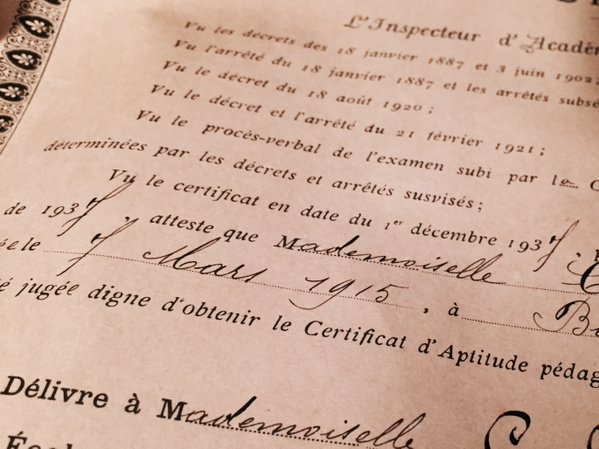 L'Inspecteur d'Acadé
Vu les décrets des 18 janvier 1887 et 3 juin 1902;
Vu l'arrêté du 18 janvier 1887 et les arrêtés subsé
Vu le décret du 18 août 1920;
Vu le décret et l'arrêté du 21 février 1921;
Vu le procès-verbal de l'examen subi par le C
déterminées par les décrets et arrêtés susvisés;
Vu le certificat en date du 1er décembre 1937,
de 1937, atteste que Mademoiselle
ée le 7 Mars 1915, à B
é jugée digne d'obtenir le Certificat d'Aptitude pédag
Délivre à Mademoiselle
École